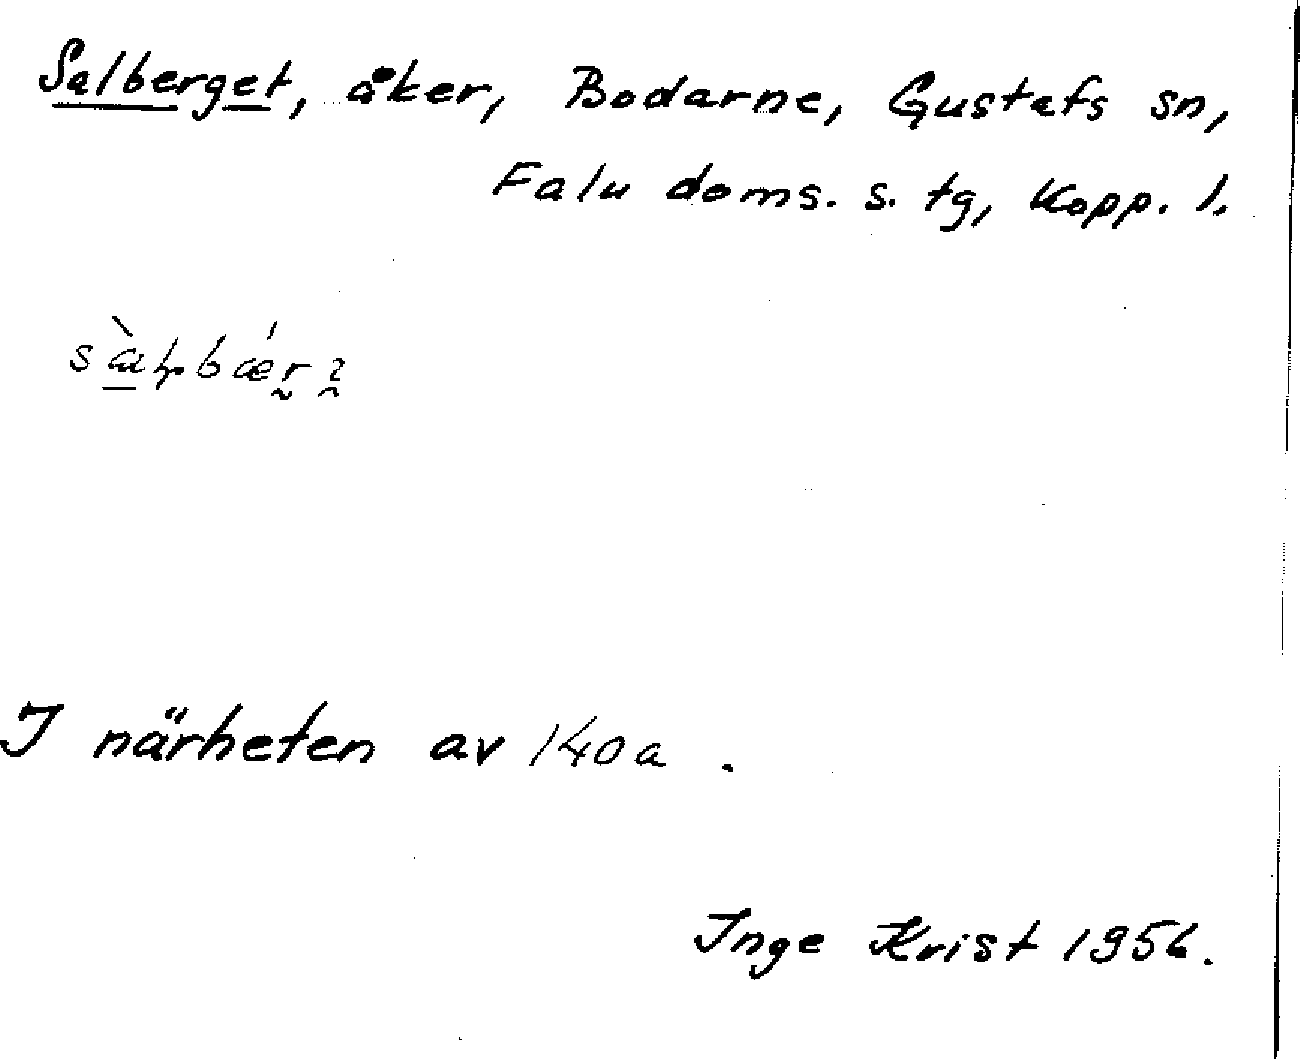 Salberget, åker, Bodarne, Gustafs sn,
Falu doms. s. tg, Kopp. l.
I närheten av 140a .
Inge Krist 1956.